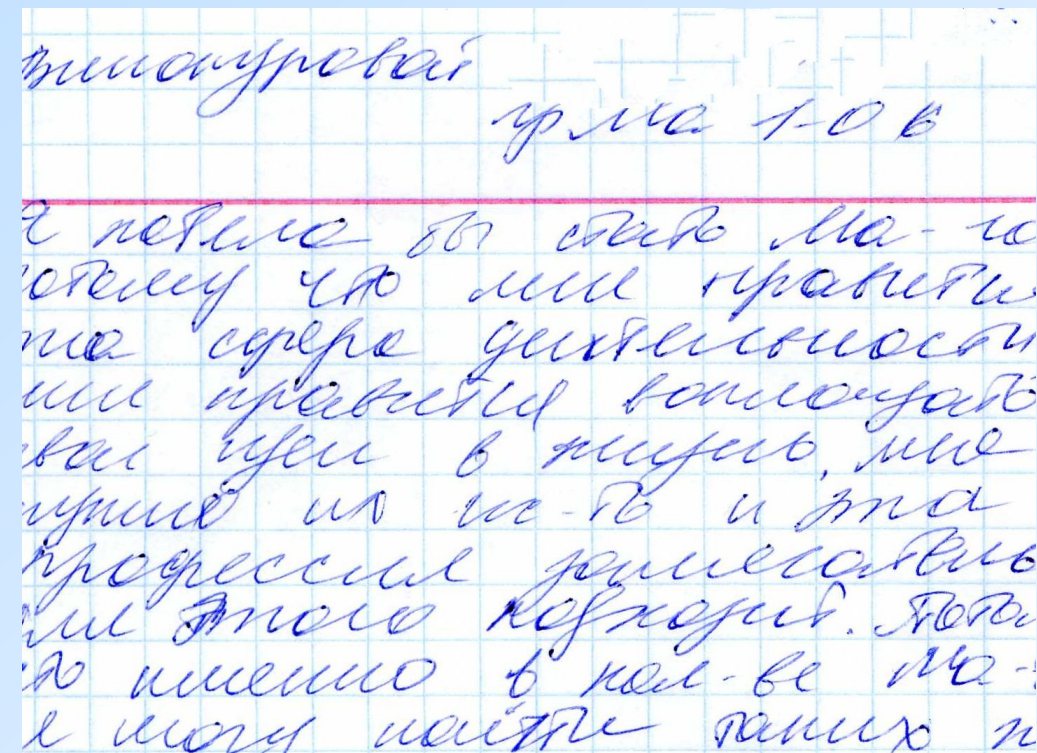 Винокуровой
гр Ма 1-0 в
Я хотела бы стать Ма-го
потому что мне нравится
эта сфера деятельности
мне нравится воплощать
свои идеи в жизнь, мне
их и эта
профессия замечатель
для этого подходит. Пото
что именно в Ма-
я могу найти таких